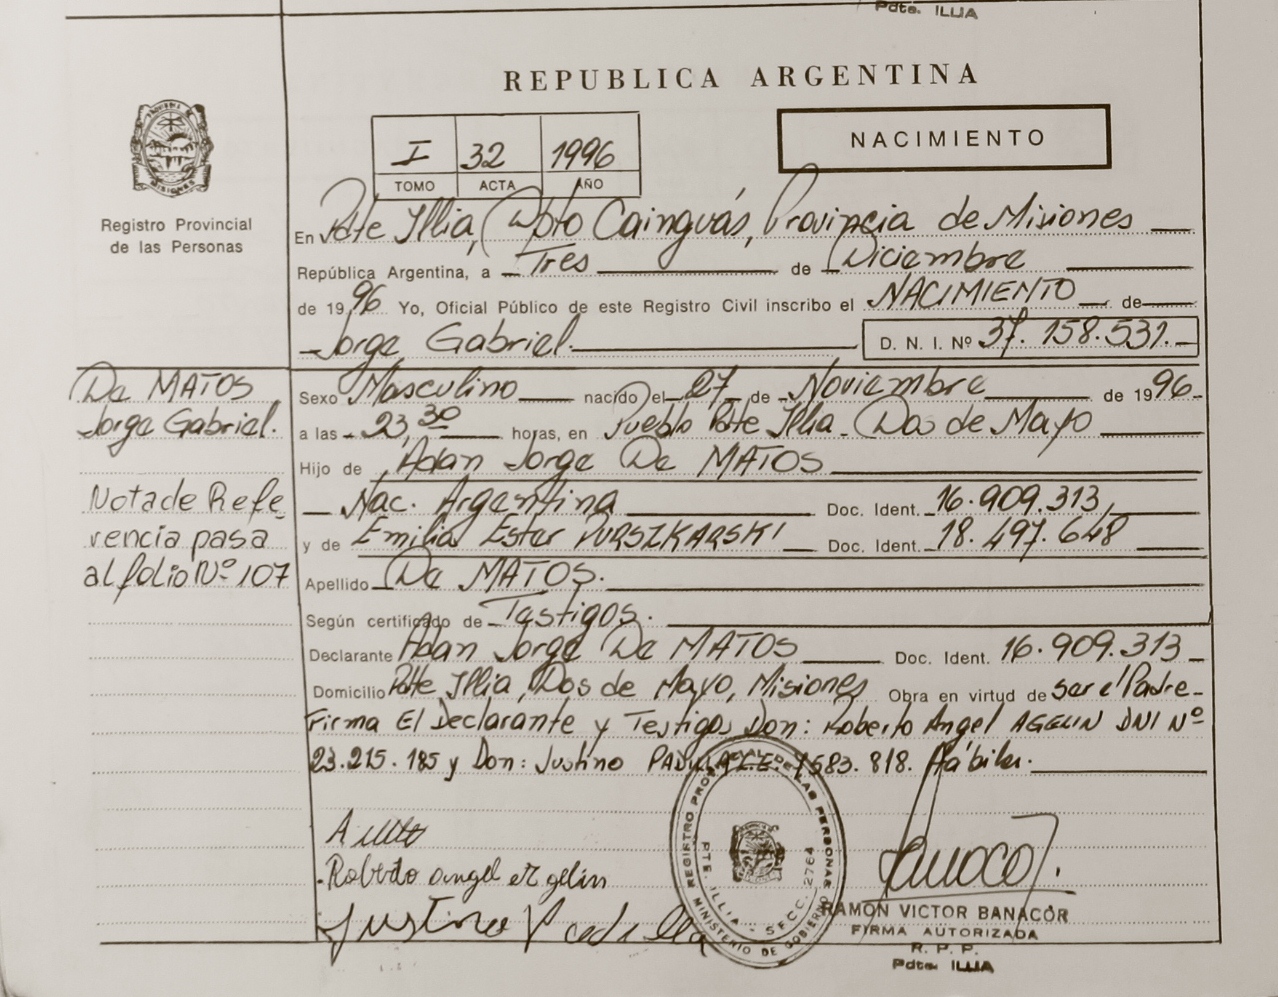 Pdte. ILLIA
REPUBLICA ARGENTINA
NACIMIENTO
I 32 1996
TOMO ACTA AÑO
Registro Provincial
de las Personas
En Pdte Illia, Dpto Cainguás, Provincia de Misiones
República Argentina, a Tres de Diciembre
de 1996 Yo, Oficial Público de este Registro Civil inscribo el NACIMIENTO de
Jorge Gabriel. D. N. I. Nº 37.158.531.
De MATOS
Jorge Gabriel.
Sexo Masculino nacido el 27 de Noviembre de 1996
a las 23,30 horas, en Pueblo Pdte Illia - Dos de Mayo
Hijo de Adan Jorge De MATOS
Nota de Refe-
rencia pasa
al folio Nº 107
Nac. Argentina Doc. Ident. 16.909.313,
y de Emilia Ester Doc. Ident. 18.497.648
Apellido De MATOS.
Según certificado de Testigos.
Declarante Adan Jorge De MATOS Doc. Ident. 16.909.313
Domicilio Pdte Illia, Dos de Mayo, Misiones Obra en virtud de ser el Padre-
Firma El Declarante y Testigos Don: Roberto Angel AGELIN DNI Nº
23.215.185 y Don: Justino PADILLA L.E. 583.818. Hábiles.
Roberto angel
Justino Padilla
REGISTRO PROVINCIAL DE LAS PERSONAS
PTE. ILLIA - SECC. 2764
MINISTERIO DE GOBIERNO
RAMON VICTOR BANACOR
FIRMA AUTORIZADA
R. P. P.
Pdte. ILLIA